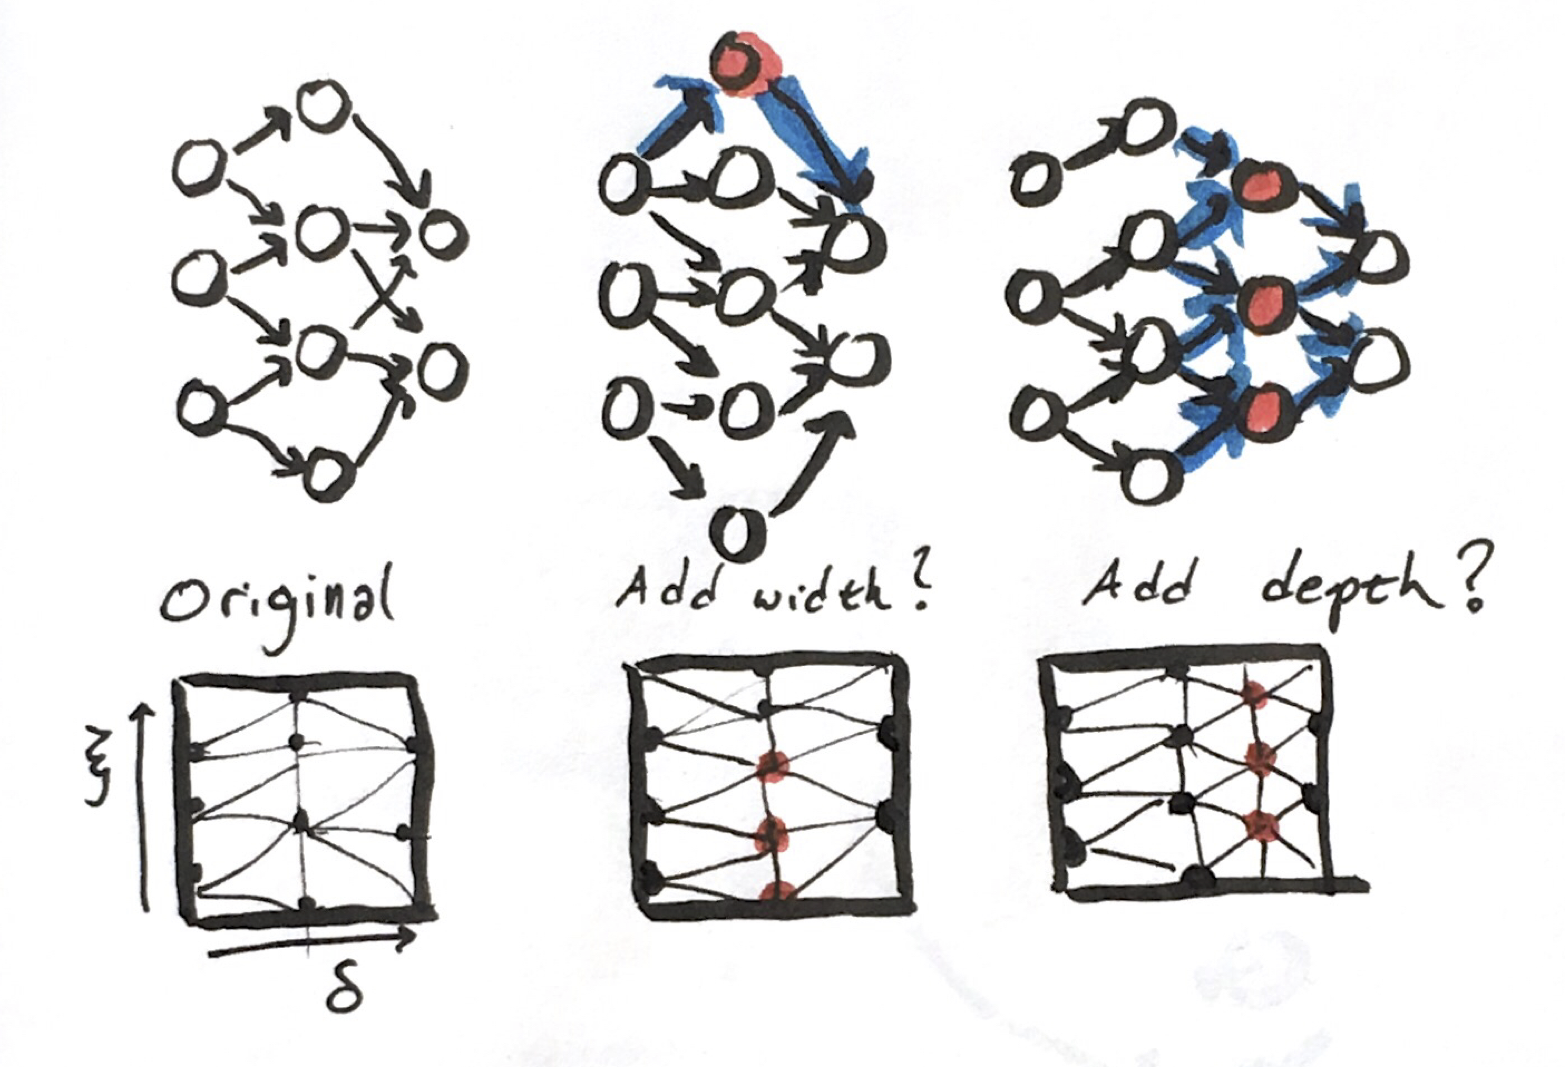 Original
Add width?
Add depth?
ξ
δ